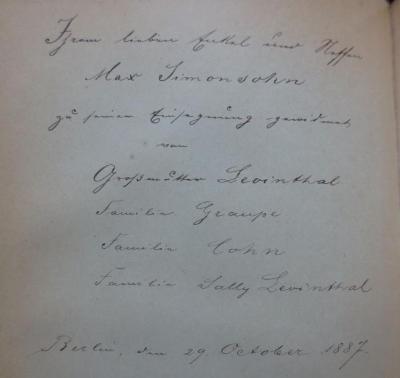 Ihrem lieben Enkel und Neffen
Max Simonsohn
zu seiner Einsegnung gewidmet,
von
Großmutter Levinthal
Familie Graupe
Familie Cohn
Familie Sally Levinthal
Berlin, den 29. October 1887.